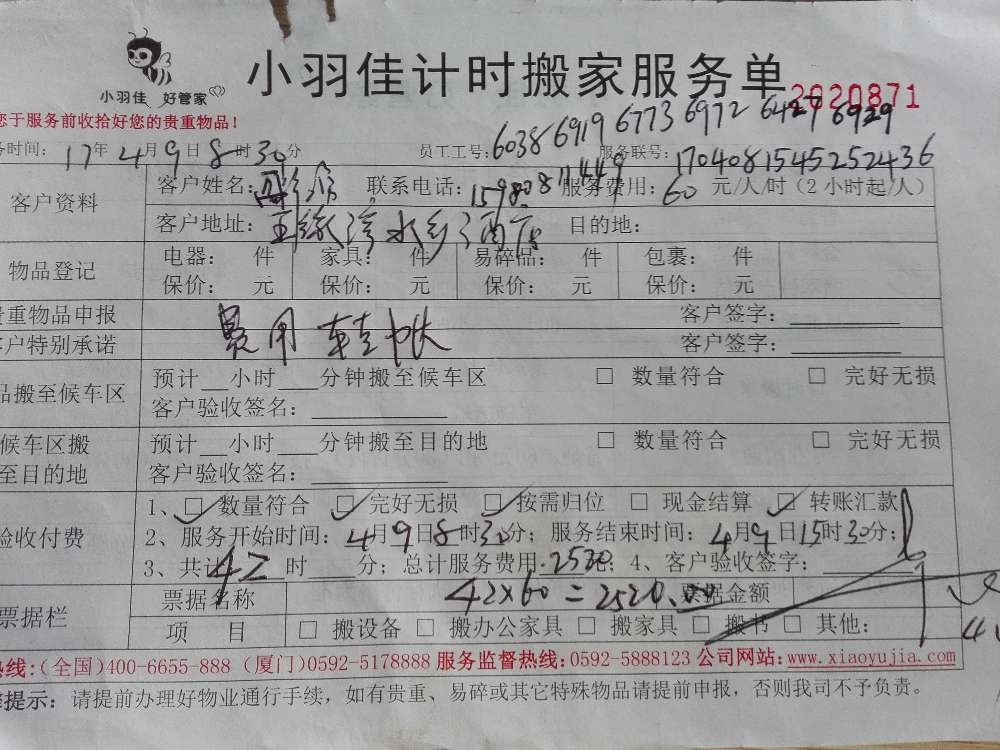 小羽佳 好管家
小羽佳计时搬家服务单
2020871
您于服务前收拾好您的贵重物品!
6038 6919 6773 6972 6427 6929
务时间: 17年4月9日8时30分 员工工号: 服务联号: 17040815452522436
客户资料
客户姓名: 联系电话: 服务费用: 60 元/人/时(2小时起/人)
客户地址: 水乡酒店 目的地:
物品登记
电器: 件 家具: 件 易碎品: 件 包裹: 件
保价: 元 保价: 元 保价: 元 保价: 元
贵重物品申报 客户签字:
客户特别承诺 费用转帐 客户签字:
品搬至候车区
预计 小时 分钟搬至候车区 □ 数量符合 □ 完好无损
客户验收签名:
候车区搬至目的地
预计 小时 分钟搬至目的地 □ 数量符合 □ 完好无损
客户验收签名:
验收付费
1、☑ 数量符合 ☑ 完好无损 ☑ 按需归位 □ 现金结算 ☑ 转账汇款
2、服务开始时间: 4月9日8时30分; 服务结束时间: 4月9日15时30分;
3、共计42时 分; 总计服务费用 2520; 4、客户验收签字:
票据栏
票据名称 42×60=2520.00 票据金额
项 目 □ 搬设备 □ 搬办公家具 □ 搬家具 □ 搬书 □ 其他:
热线:(全国)400-6655-888 (厦门)0592-5178888 服务监督热线:0592-5888123 公司网站:www.xiaoyujia.com
提示: 请提前办理好物业通行手续,如有贵重、易碎或其它特殊物品请提前申报,否则我司不予负责。